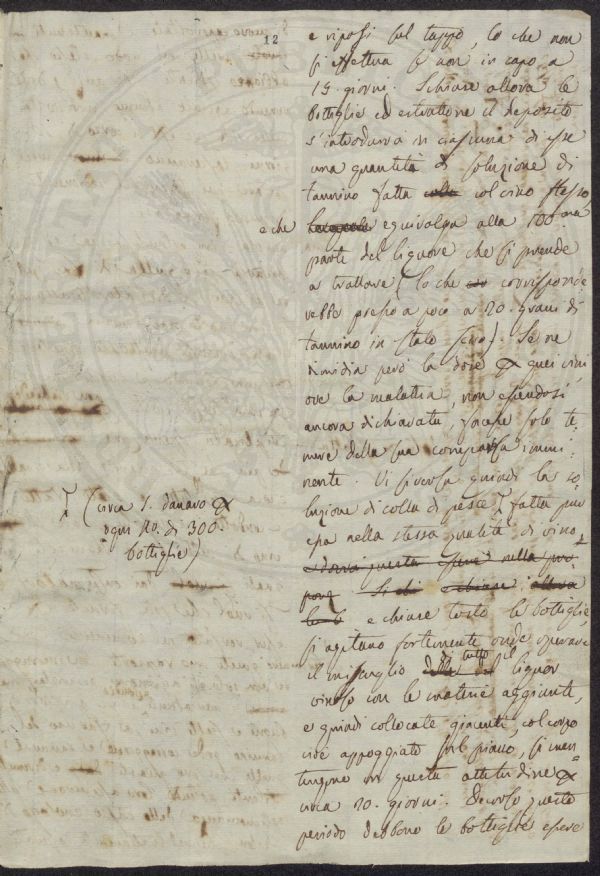 12
e riposi sul tappo, lo che non
si effettua se non in capo a
15 giorni. Schiuse allora le
bottiglie ed estrattone il deposito
s'introdurrà in ciascuna di esse
una quantità di soluzione di
tannino fatta colla col vino stesso,
e che equivalga alla 100ma
parte del liquore che si prende
a trattare (lo che corrisponde
rebbe presso a poco a 20. grani di
tannino in stato secco). Se ne
dimidia però la dose quei vini
ove la malattia, non essendosi
ancora dichiarata, facesse solo te
mere della sua comparsa immi
nente. Vi si versa quindi la so
luzione di colla di pesce fatta pur
essa nella stessa qualità di vino
(circa 1. danaro
ogni no. di 300.
bottiglie)
e questa nella pro
Si chiuse allora
le b e chiuse tosto le bottiglie,
si agitano fortemente onde operare
il miscuglio tutto il liquor
vinoso con le materie aggiunte,
e quindi collocate giacenti, col corpo
cioè appoggiato sul piano, si man
tengono in questa attitudine
circa 20. giorni. Decorso questo
periodo debbono le bottiglie essere